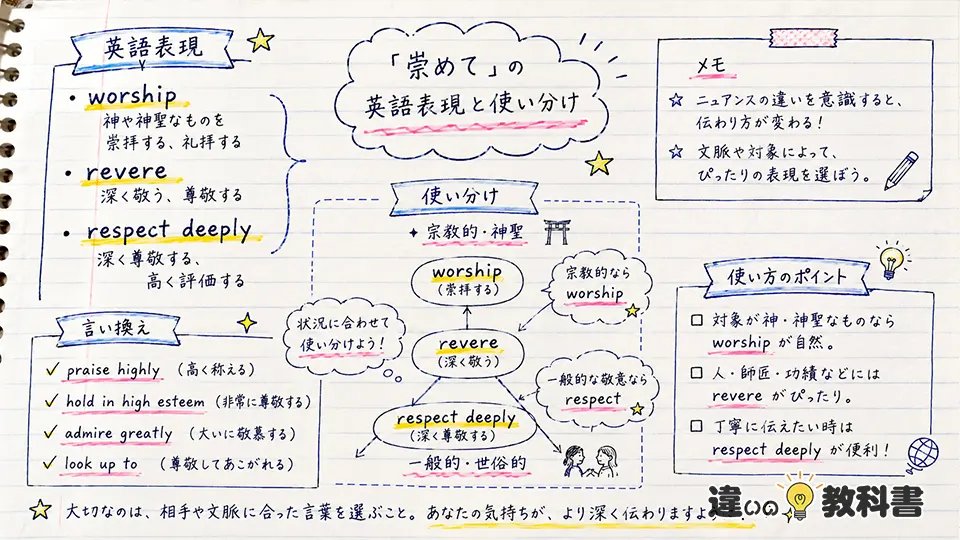 「崇めて」の
英語表現と使い分け
英語表現
• worship
神や神聖なものを
崇拝する、礼拝する
• revere
深く敬う、尊敬する
• respect deeply
深く尊敬する、
高く評価する
言い換え
✓ praise highly (高く称える)
✓ hold in high esteem (非常に尊敬する)
✓ admire greatly (大いに敬慕する)
✓ look up to (尊敬してあこがれる)
使い分け
宗教的・神聖
worship
(崇拝する)
宗教的なら
worship
状況に合わせて
使い分けよう!
revere
(深く敬う)
一般的な敬意なら
respect
respect deeply
(深く尊敬する)
一般的・世俗的
メモ
☆ ニュアンスの違いを意識すると、
伝わり方が変わる!
☆ 文脈や対象によって、
ぴったりの表現を選ぼう。
使い方のポイント
□ 対象が神・神聖なものなら
worship が自然。
□ 人・師匠・功績などには
revere がぴったり。
□ 丁寧に伝えたい時は
respect deeply が便利!
大切なのは、相手や文脈に合った言葉を選ぶこと。あなたの気持ちが、より深く伝わりますよ
違いの教科書